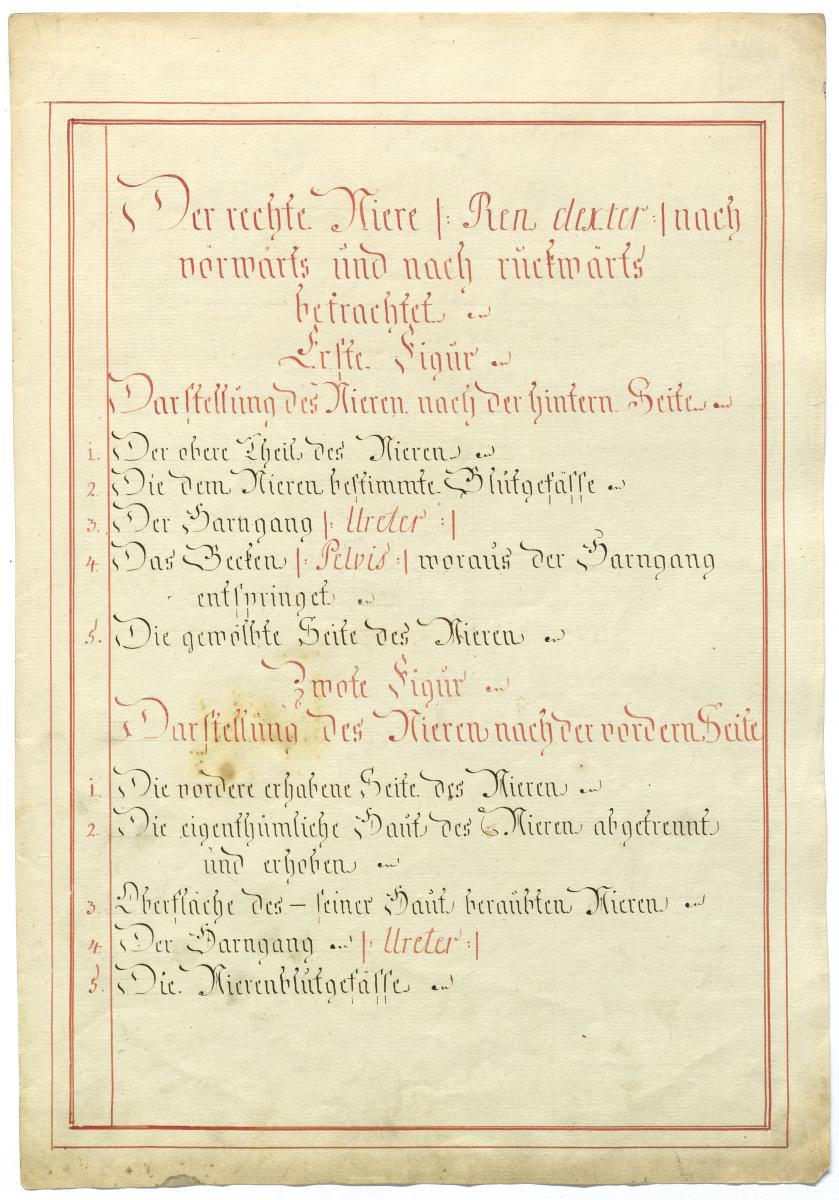 Der rechte Niere |: Ren dexter :| nach
vorwärts und nach rückwärts
betrachtet
Erste Figur
Darstellung des Nieren nach der hintern Seite
1. Der obere Theil des Nieren
2. Die dem Nieren bestimmte Blutgefässe
3. Der Harngang |: Ureter :|
4. Das Becken |: Pelvis :| woraus der Harngang
entspringet
5. Die gewölbte Seite des Nieren
Zwote Figur
Darstellung des Nieren nach der vordern Seite
1. Die vordere erhabene Seite des Nieren
2. Die eigenthümliche Haut des Nieren abgetrennt
und erhoben
3. Oberfläche des – seiner Haut beraubten Nieren
4. Der Harngang |: Ureter :|
5. Die Nierenblutgefässe